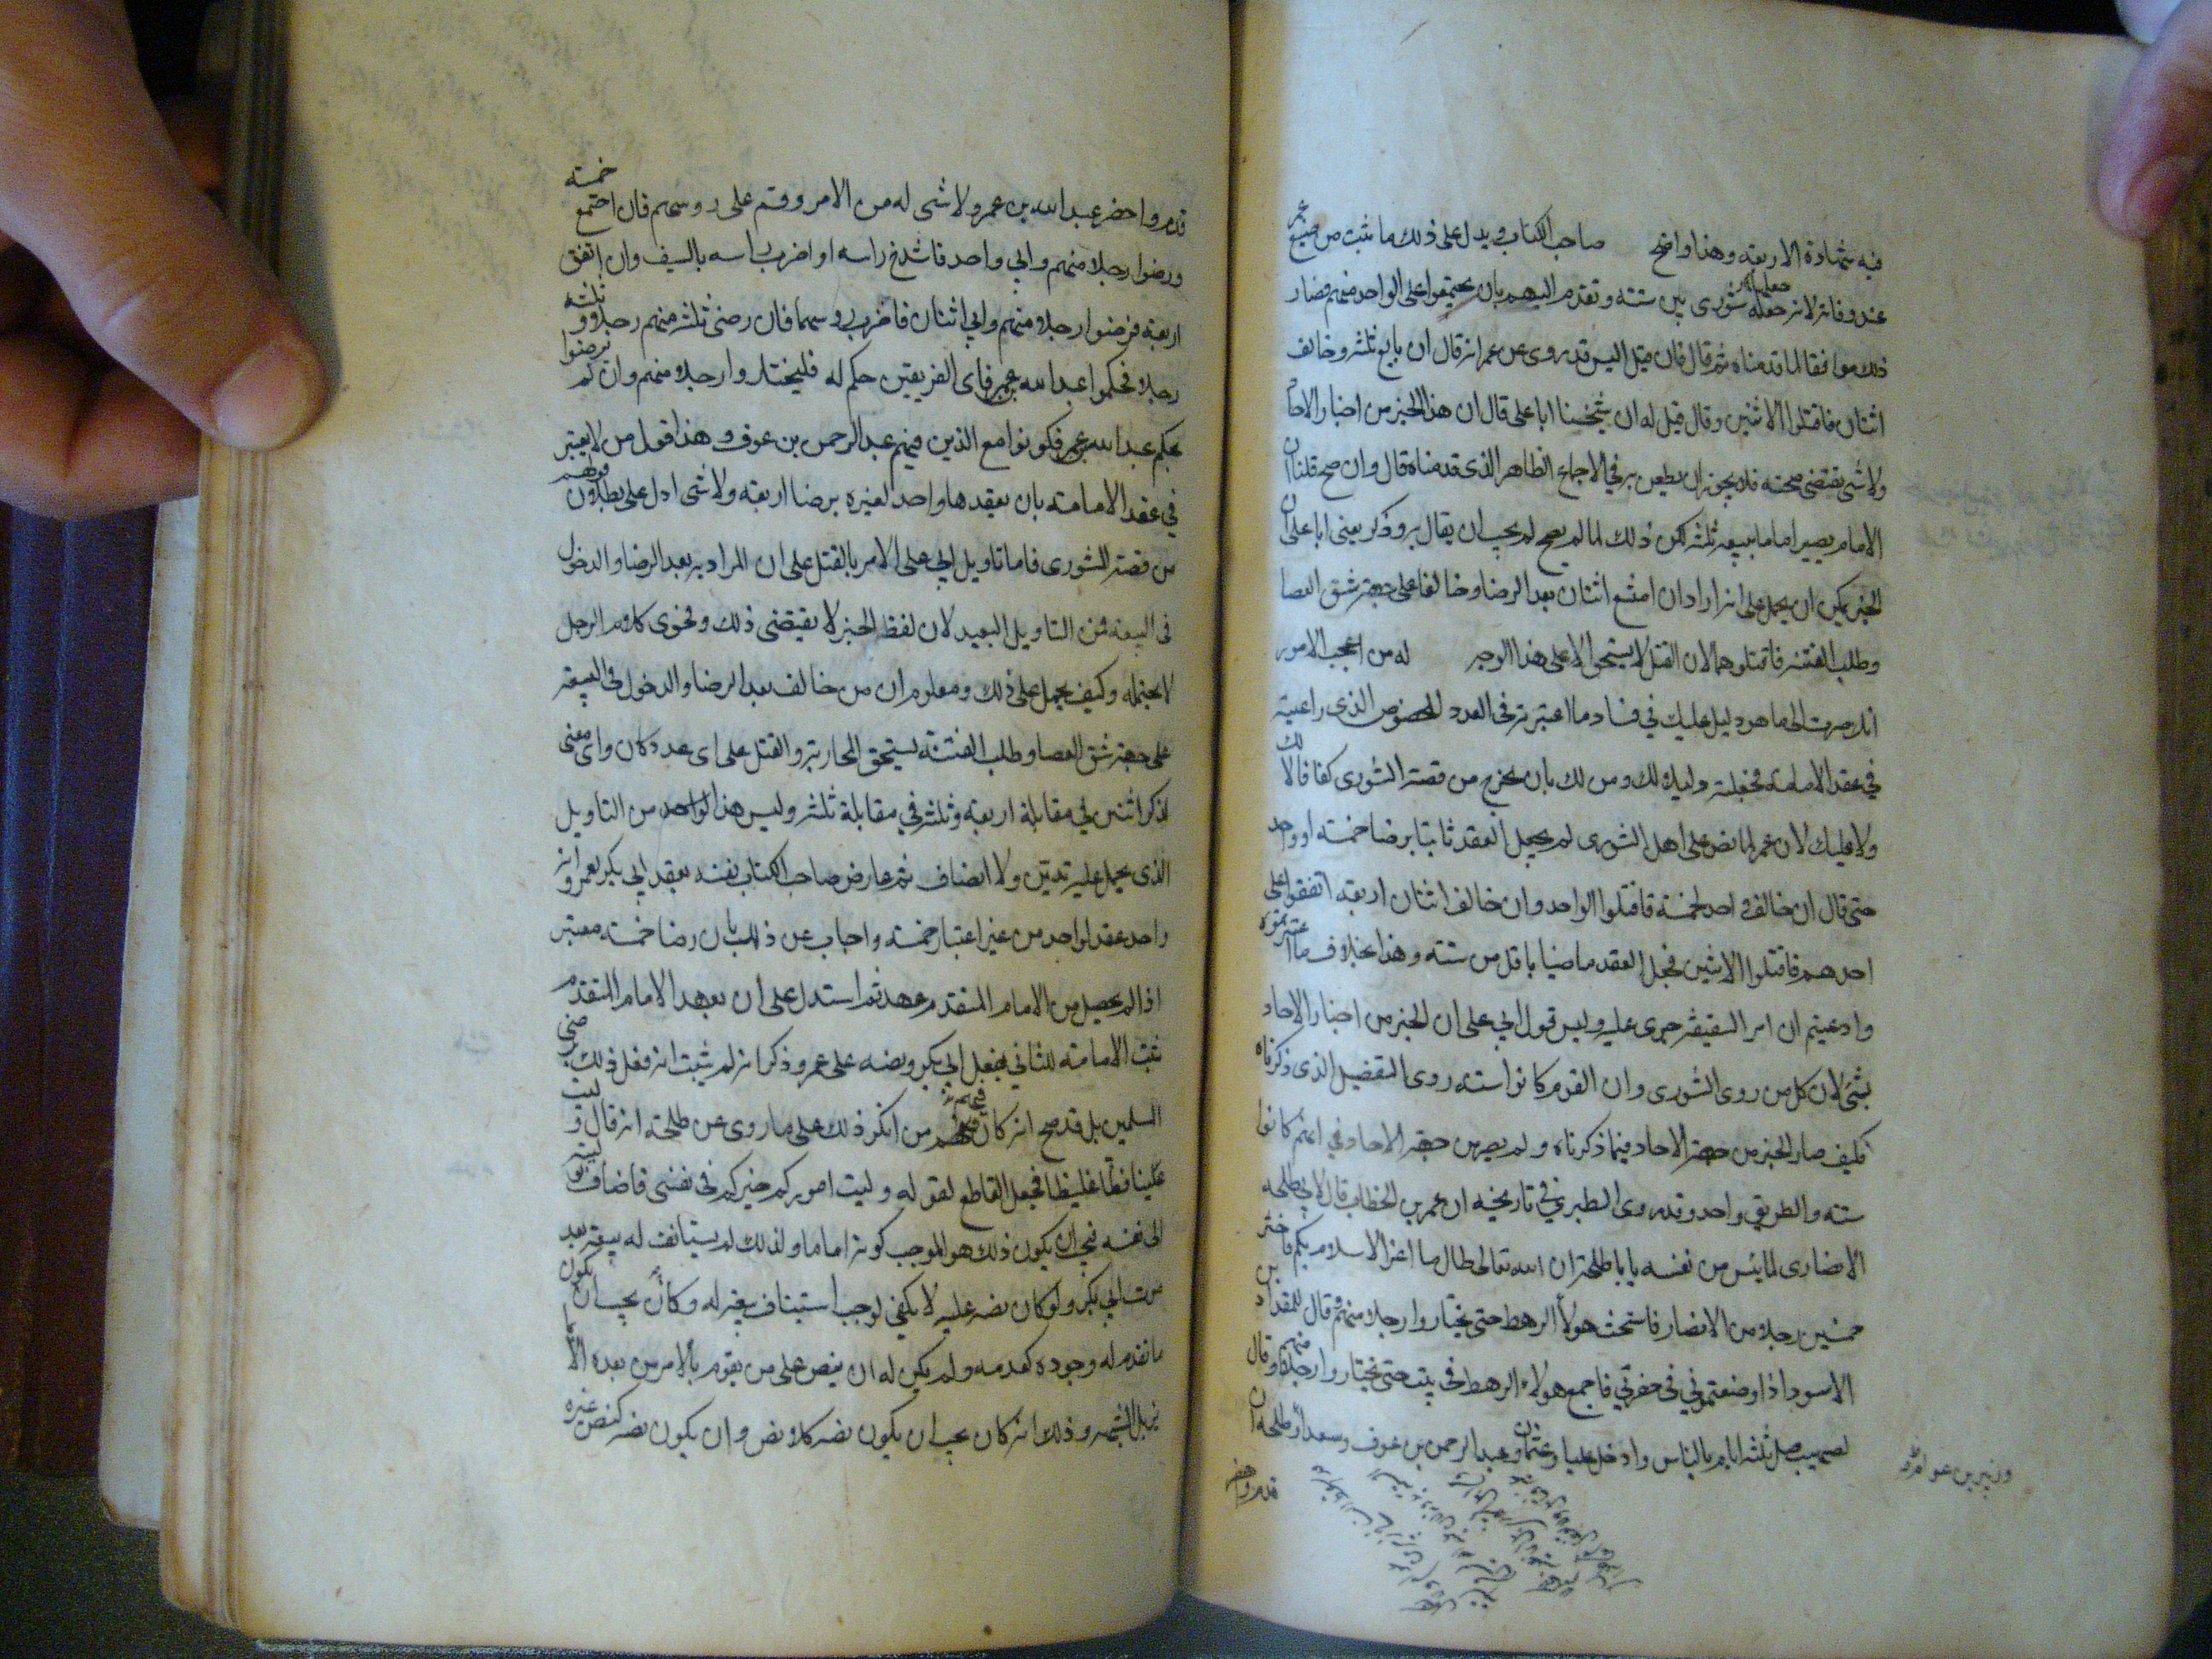 فيه شهادة الاربعة وهذا واضح صاحب الكتاب ويدل على ذلك ما ثبت من صنيع عمر
عند وفاته لانه جعله شورى بين ستة وتقدم اليهم بان يجتمعوا على الواحد منهم فصار
ذلك موافقا لما قدمناه ثم قال فان قيل اليس قد روى عن عمر انه قال ان بايع ثلثة وخالف
اثنان فاقتلوا الاثنين وقال قيل له ان شيخنا ابا على قال ان هذا الخبر من اخبار الاحاد
ولا شى يقتضى صحته فلا يجوز ان يطعن به في الاجماع الظاهر الذى قدمناه قال وان صح قلنا ان
الامام يصير اماما ببيعة ثلثة لكن ذلك لما لم يصح لم يجب ان يقال به وذكر يعنى ابا على ان
الخبر يمكن ان يحمل على انه اراد ان امتنع اثنان بعد الرضا وخالفا على جهة شق العصا
وطلب الفتنة فاقتلوهما لان القتل لا يستحق الا على هذا الوجه له من اعجب الامور
انك صرت الى ما هو دليل عليك في فساد ما اعتبرته فى العدد المخصوص الذى راعيته
في عقد الامامة فجعلته دليلا لك ومن لك بان يخرج من قصة الشورى كفافا لا لك
ولا عليك لان عمر لما نص على اهل الشورى لم يجعل العقد ثابتا برضا خمسة او واحد
حتى قال ان خالف احد لخمسة فاقتلوا الواحد وان خالف اثنان اربعة اتفقوا على
احدهم فاقتلوا الاثنين فجعل العقد ماضيا باقل من ستة وهذا بخلاف ما اعتبرتموه
وادعيتم ان امر السقيفة جرى عليه وليس قول ابي على ان الخبر من اخبار الاحاد
بشئ لان كل من روى الشورى وان القوم كانوا ستة روى التفصيل الذى ذكرناه
فكيف صار الخبر من جهة الاحاد فيما ذكرناه ولم يصر من جهة الاحاد في انهم كانوا
ستة والطريق واحد وقد روى الطبري في تاريخه ان عمر بن الخطاب قال لابي طلحة
الانصارى لما يئس من نفسه يابا طلحة ان الله تعالى طال ما اعز الاسلام بكم فاختر
خمسين رجلا من الانصار فاستحث هولاء الرهط حتى يختاروا رجلا منهم وقال للمقداد بن
الاسود اذا وضعتمونى فى حفرتي فاجمع هولاء الرهط فى بيت حتى يختاروا رجلا منهم وقال
لصهيب صل ثلثة ايام بالناس وادخل عليا وعثمان وعبد الرحمن بن عوف وسعدا وطلحة ان
وزبير بن عوام
قدم واحضر
قدم واحضر عبد الله بن عمر ولا شى له من الامر وقم على روسهم فان اجتمع خمسة
ورضوا رجلا منهم وابي واحد فاشدخ راسه او اضرب راسه بالسيف وان اتفق
اربعة فرضوا رجلا منهم وابي اثنان فاضرب روسهما فان رضى ثلثة منهم رجلا وثلثة
رجلا فحكموا عبد الله بن عمر فاى الفريقين حكم له فليختاروا رجلا منهم وان لم يرضوا
بحكم عبد الله بن عمر فكونوا مع الذين فيهم عبد الرحمن بن عوف وهذا قول من لا يعتبر
في عقد الامامة بان يعقدها واحد لغيره برضا اربعة ولا شى ادل على بطلان قولهم
من قصة الشورى فاما تاويل ابي على الامر بالقتل على ان المراد به بعد الرضا والدخول
فى البيعة فمن التاويل البعيد لان لفظ الخبر لا يقتضى ذلك وفحوى كلام الرجل
لا يحتمله وكيف يحمل على ذلك ومعلوم ان من خالف بعد الرضا والدخول فى البيعة
على جهة شق العصا وطلب الفتنة يستحق المحاربة والقتل على اى عدد كان واى معنى
لذكر اثنين في مقابلة اربعة وثلثة في مقابلة ثلثة وليس هذا الواحد من التاويل
الذى يحمل عليه تدين ولا انصاف ثم عارض صاحب الكتاب نفسه بعقد ابي بكر لعمر وانه
واحد عقد لواحد من غير اعتبار خمسة واجاب عن ذلك بان رضا خمسة معتبر
اذا لم يحصل من الامام المتقدم عهد ثم استدل على ان بعهد الامام المتقدم
تثبت الامامة للثاني بفعل ابي بكر ونصه على عمر وذكر انه لم يثبت انه فعل ذلك برضى
المسلمين بل قد صح انه كان فيهم من انكر ذلك على ما روى عن طلحة انه قال وليت
علينا فظا غليظا فجعل القاطع لقوله وليت اموركم خيركم فى نفسى فاضاف توليته
الى نفسه فيجب ان يكون ذلك هو الموجب كونه اماما ولذلك لم يستانف له بيعة بعد
موت ابي بكر ولو كان نصه عليه لا يكفي لوجب استيناف بيعة له وكان يجب ان يكون
ما تقدم له وجوده كعدمه ولم يكن له ان ينص على من يقوم بالامر من بعده الا بما
يزيل الشبهة وذلك انه كان يجب ان يكون نصه كلا نص وان يكون نصه كنص غيره